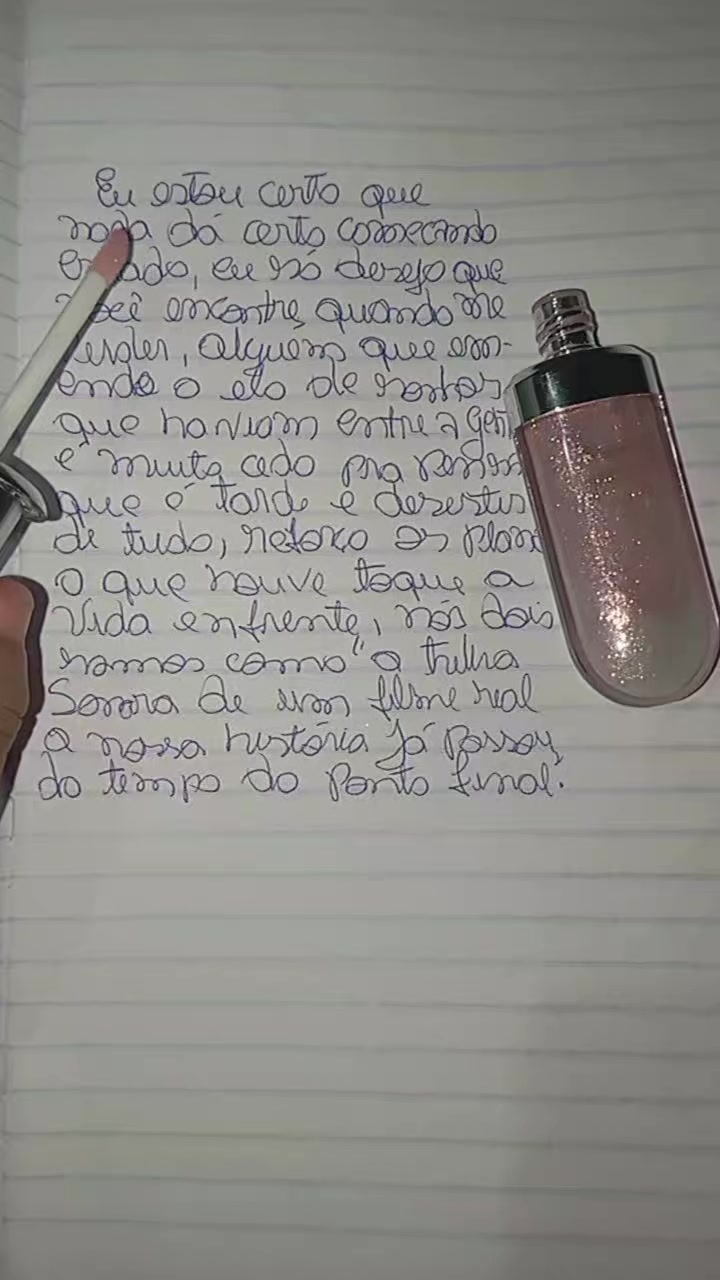 Eu estou certo que
nada dá certo começando
errado, eu só desejo que
você encontre, quando me
perder, alguém que em-
enda o elo de
que haviam entre a gente
é muito cedo pra
que é tarde e
de tudo, os
O que houve toque a
vida enfrente, nós dois
somos como "a trilha
Sonora de um filme real
a nossa história já passou
do tempo do ponto final.